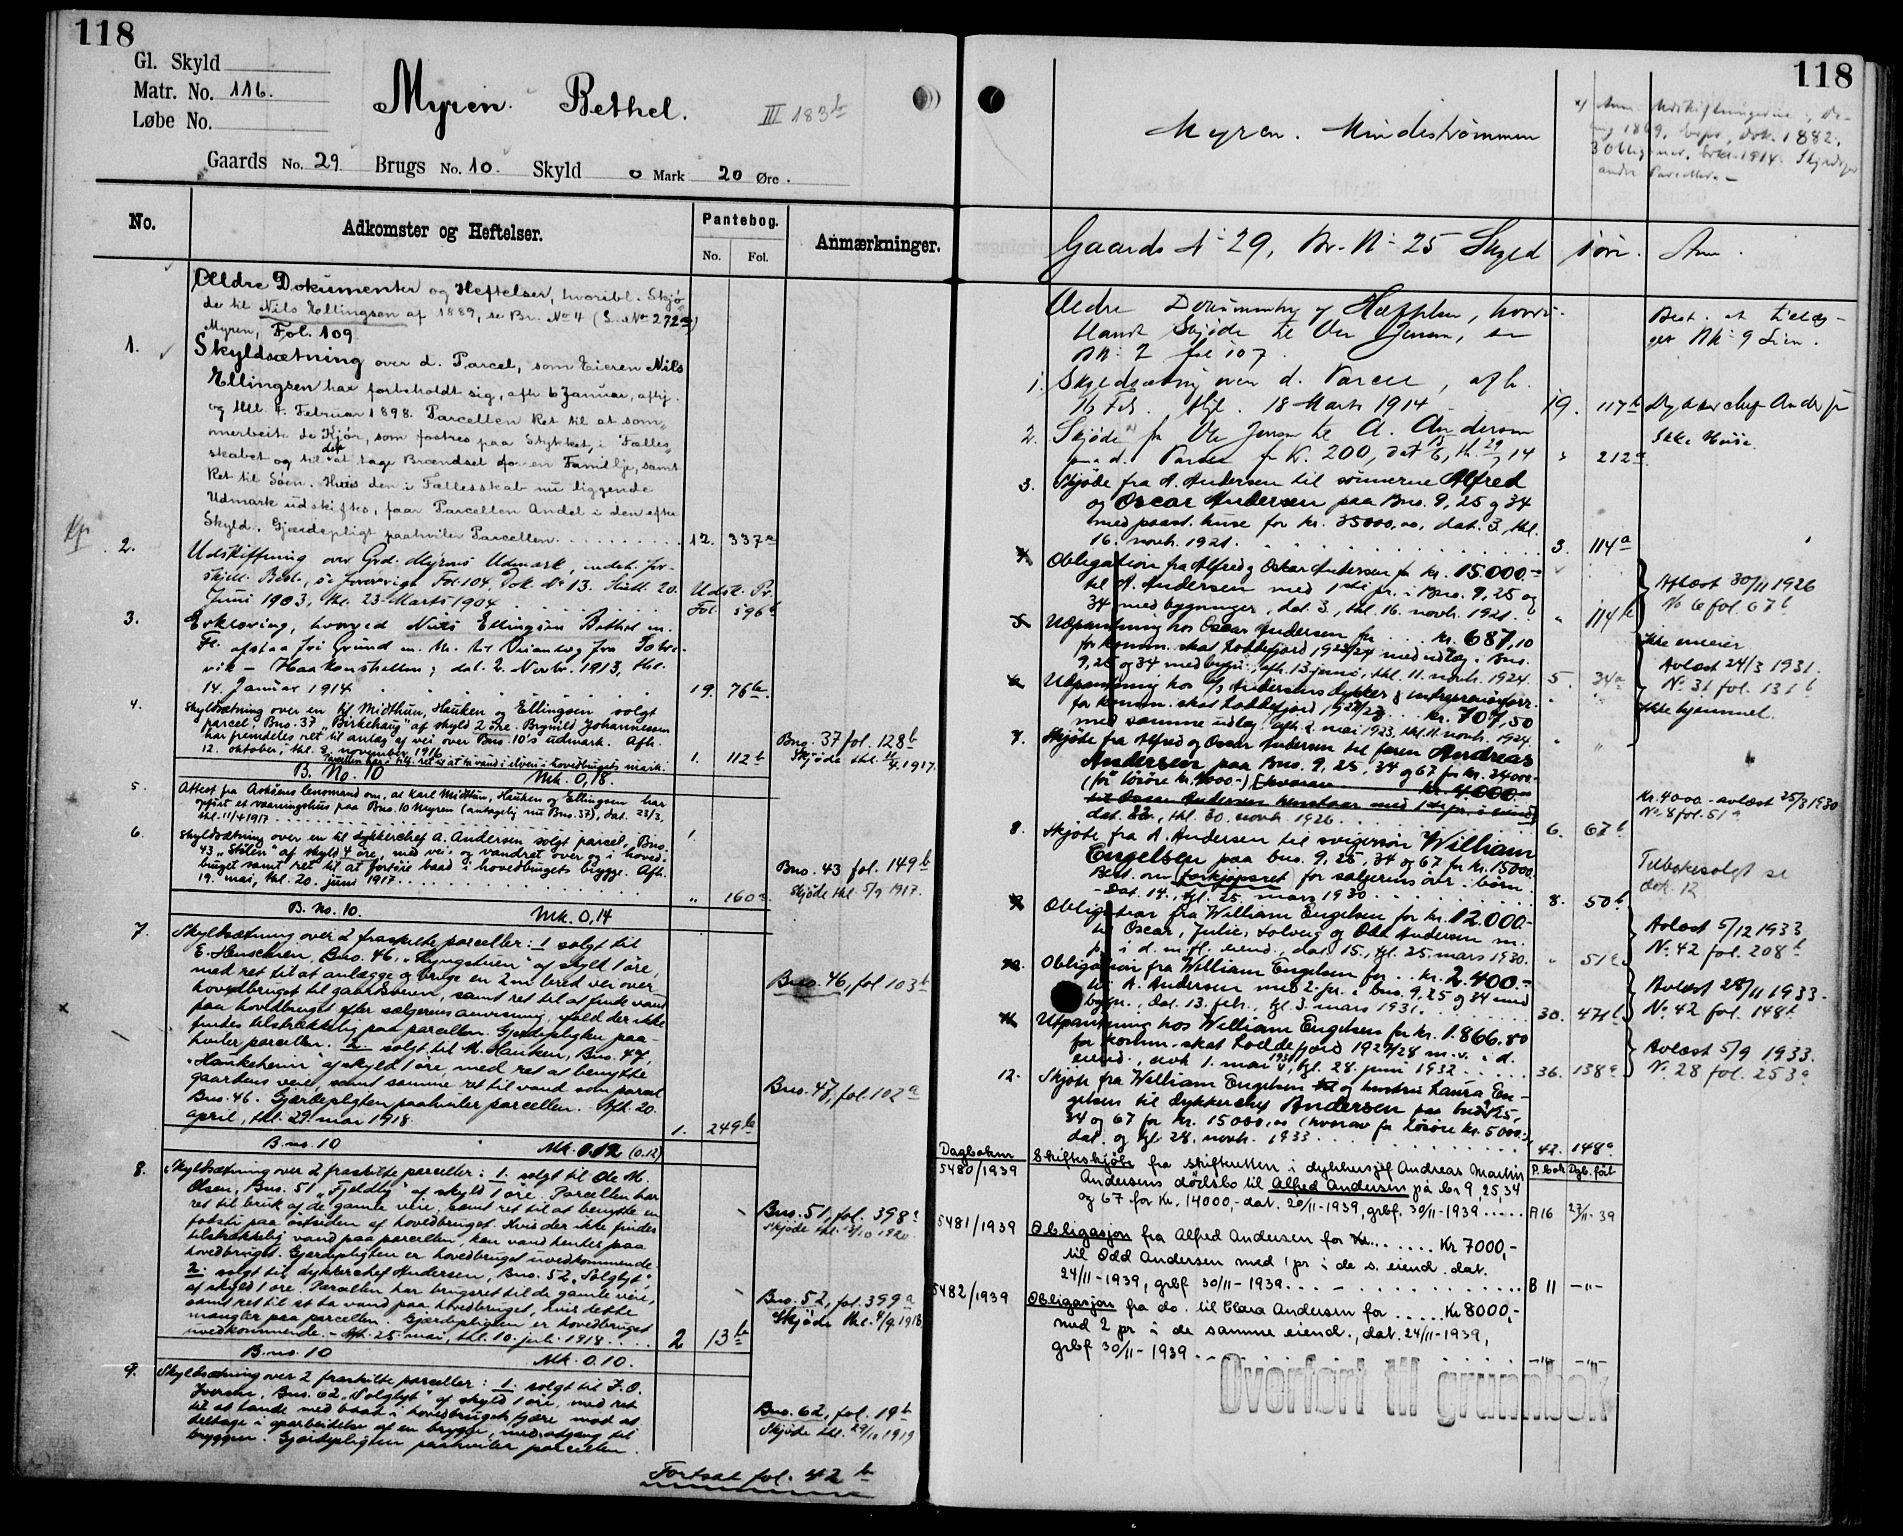 118
Gl. Skyld
Matr. No. 116.
Løbe No.
Myren. Bethel.
III 183b
Gaards No. 29 Brugs No. 10. Skyld 0 Mark 20 Øre.
No.
Adkomster og Heftelser.
Pantebog.
No. Fol.
Anmærkninger.
Ældre Dokumenter og Heftelser, hvoribl. Skjø-
de til Nils Ellingsen af 1889, se Br. No 4 (L. No 272a)
Myren, Fol. 109
1. Skyldsætning over d. Parcel, som Eieren Nils
Ellingsen har forbeholdt sig, afh. 6 Januar, afhj.
og thl. 4. Februar 1898. Parcellen Ret til at som-
merbeite de Kjør, som fostres paa Stykket, i Fælles-
skabet og til der at tage Brændsel for en Familje, samt
Ret til Søen. Hvis den i Fællesskab nu liggende
Udmark udskiftes, faar Parcellen Andel i den efter
Skyld. Gjærdepligt paahviler Parcellen. 12. 337a
2. Udskiftning over Grd. Myrens Udmark, indeh. for-
skjell. Best., se forøvrigt Fol. 104 Dok. No 13. Slutt. 20.
Juni 1903, thl. 23 Marts 1904 Udsk. Pr. Fol. 596b
3. Erklæring, hvorved Nils Ellingsen Bethel m.
Fl. afstaa fri Grund m. m. til Veianlæg fra
vik - Haakonshellen; dat. 2. Novbr. 1913, thl.
14. Januar 1914 19. 76b
4. Skyldsætning over en til Midthun, Hauken og Ellingsen solgt
parcel, Bno. 37, "Birkehaug" af skyld 2 øre. Brynild Johannessen
har fremdeles ret til anlæg af vei over Bno. 10's udmark. Afh.
12. oktober, thl. 9. november 1916
Parcellen har i tilf. ret til at ta vand i elven i hovedbrugets mark. 1. 112b
Bno. 37 fol. 128b
B. No. 10 Mk. 0,18.
5. Attest fra Askøens lensmand om, at Karl Midthun, Hauken og Ellingsen har
opført et vaaningshus paa Bno. 10 Myren (antagelig nu Bno. 37), dat. 23/3,
thl. 11/4 1917 1.
6. Skyldsætning over en til dykkerchef A. Andersen solgt parcel, Bno.
43 "Stølen" af skyld 4 øre, med vei- og vandret over og i hoved-
bruget samt ret til at fortøie baad i hovedbrugets brygge. Afh.
19. mai, thl. 20. juni 1917 " 160a
Bno. 43 fol. 149b
Skjøde thl. 5/9 1917.
B. No. 10. Mk. 0,14
7. Skyldsætning over 2 fraskilte parceller: 1. solgt til
E. Henschien, Bno. 46, "Lyngstuen" af skyld 1 øre,
med ret til at anlægge og bruke en 2 m bred vei over
hovedbruget til gaardsveien, samt ret til at finde vand
paa hovedbruget efter sælgerens anvisning, ifald der ikke
findes tilstrækkelig paa parcellen. Gjerdepligten paa-
hviler parcellen. 2. solgt til M. Hauken, Bno. 47,
"Haukeheim" af skyld 1 øre, med ret at benytte
gaardens veie, samt samme ret til vand som parcel
Bno. 46. Gjærdepligten paahviler parcellen. Afh. 20.
april, thl. 29. mai 1918. 1. 249b
Bno. 46, fol 103b
Bno. 47, fol. 102a
B. no. 10 Mk. 0.12 (0.12)
8. Skyldsætning over 2 fraskilte parceller: 1. solgt til Ole M.
Olsen, Bno. 51 "Fjeldly" af skyld 1 øre. Parcellen har
ret til bruk af de gamle veie, samt ret til at benytte en
fodsti paa østsiden af hovedbruget. Hvis der ikke findes
tilstrækkelig vand paa parcellen, kan vand hentes paa
hovedbruget. Gjærdepligten er hovedbruget uvedkommende.
2. solgt til dykkerchef Andersen, Bno. 52, "Solglyt"
af skyld 1 øre. Parcellen har brugsret til de gamle veie,
samt ret til at ta vand paa hovedbruget, hvis dette
mangler paa parcellen. Gjærdepligten er hovedbruget
uvedkommende. - Afh. 25. mai, thl. 10. juli 1918. 2 13b
Bno. 51, fol. 398a
Bno. 52, fol. 399a
Skjøde thl. 4/9 1918
B. no. 10 Mk. 0.10.
9. Skyldsætning over 2 fraskilte parceller: 1. solgt til J. O.
Iversen, Bno. 62 "Solglyt" af skyld 1 øre, med ret
til at lande med baat i hovedbrugets fjære mod at
deltage i oparbeidelse af en brygge, med adgang til
bryggen. Gjærdepligten paahviler parcellen.
Bno. 62, fol. 19b
Skjøde thl. 29/10 1919
Fortsat fol. 42b
118
Myren. Mindestrømmen
Gaards No 29, Br. No 25 Skyld 1 øre. Anm.
Ældre Dokumenter og Hæftelser, hvori-
blandt Skjøde til Ole Jensen, se
BN: 2 fol 107.
1. Skyldsætning over d. Parcel, afh.
16 Feb. thgl. 18 Marts 1914 19. 117b
2. Skjøde fra Ole Jensen til A. Andersen
paa d. Parcel for Kr. 200, " 212a
3. Skjøde fra A. Andersen til sønnerne Alfred
og Oscar Andersen paa Bno. 9, 25 og 34
med paast. huse for kr. 35000,00, dat. 3, thl.
16. novb. 1921. 3. 114a
4. Obligation fra Alfred og Oskar Andersen for kr. 15.000.-
til A. Andersen med 1ste pr. i Bno. 9, 25 og
34 med bygninger, dat. 3, thl. 16. novb. 1921. " 114b
Avlæst 30/11 1926
No 6 fol. 67b
5. Udpantning hos Oscar Andersen for kr. 687,10
for komm. skat Laddefjord 1923/24 med udlæg i Bno.
9, 25 og 34 med bygn., afh. 13 juni, thl. 11. novb. 1924. 5. 34a
Ikke eneeier
Avlæst 24/3 1931.
No 31 fol. 131b
6. Udpantning hos A/s Andersens dykker & entreprenørforr.
for komm. skat Laddefjord 1922/23 kr. 707,50
med samme udlæg, afh. 2. mai 1923, thl. 11. novb. 1924. " "
Ikke hjemmel.
7. Skjøde fra Alfred og Oscar Andersen til faren Andreas
Andersen paa Bno. 9, 25, 34 og 67 for kr. 24000.-
(før løsøre kr. 4000.-) [hvorav kr. 4000.-
til Oscar Andersen henstaar med 1ste pr. i eiend.]
dat. 22., thl. 30. novb. 1926 6. 67b
Kr. 4000.- avlæst 25/3 1930
No. 8 fol. 51a
8. Skjøte fra A. Andersen til svigersøn William
Engelsen paa bno. 9, 25, 34 og 67 for kr. 15000.
Best. om forkjøpsret for sælgerens øvr. børn.
- Dat. 14., tgl. 25. mars 1930 8. 50b
Tilbakesolgt se
dok. 12
9. Obligation fra William Engelsen for kr. 12.000.-
til Oscar, Julie, Solveig og Odd Andersen m.
pr. i d. m. fl. eiend., dat. 15., tgl. 25. mars 1930. " 51a
Avlæst 5/12 1933
No. 42 fol. 208b
10. Obligasjon fra William Engelsen for kr. 2.400.-
til A. Andersen med 2. pr. i bno. 9, 25 og 34 med
bygn., dat. 13. feb., tgl 3. mars 1931. 30. 471b
Avlæst 28/11 1933.
No. 42 fol. 148b
11. Utpantning hos William Engelsen for kr. 1.866.80
for komm. skat Laddefjord 1927/28 m. v. i d.
eiend., avh. 1. mai 1931, tgl. 28. juni 1932 36. 138a
Avlæst 5/9 1933.
No. 28 fol. 253a
12. Skjøte fra William Engelsen og hustru Laura En-
gelsen til dykkerchef Andersen paa bno 9, 25,
34 og 67 for kr. 15000,00 (hvorav for løsøre kr. 5000.-)
dat. og tgl. 28. novb. 1933 42. 148a
Dagboknr P. bok Dgb. ført
5480/1939 Skifteskjøte fra skifteretten i dykkersjef Andreas Martin
Andersens dødsbo til Alfred Andersen på br 9, 25, 34
og 67 for Kr. 14000,- dat. 20/11-1939, grbf. 30/11-1939 A16 27/11-39
5481/1939 Obligasjon fra Alfred Andersen for Kr 7000,-
til Odd Andersen med 1 pr i de s. eiend. dat.
24/11-1939, grbf 30/11-1939. B 11 -"-
5482/1939 Obligasjon fra do. til Clara Andersen for Kr 8000,-
med 2 pr i de samme eiend., dat. 24/11-1939,
grbf 30/11-1939 -"- -"-
Overført til grunnbok